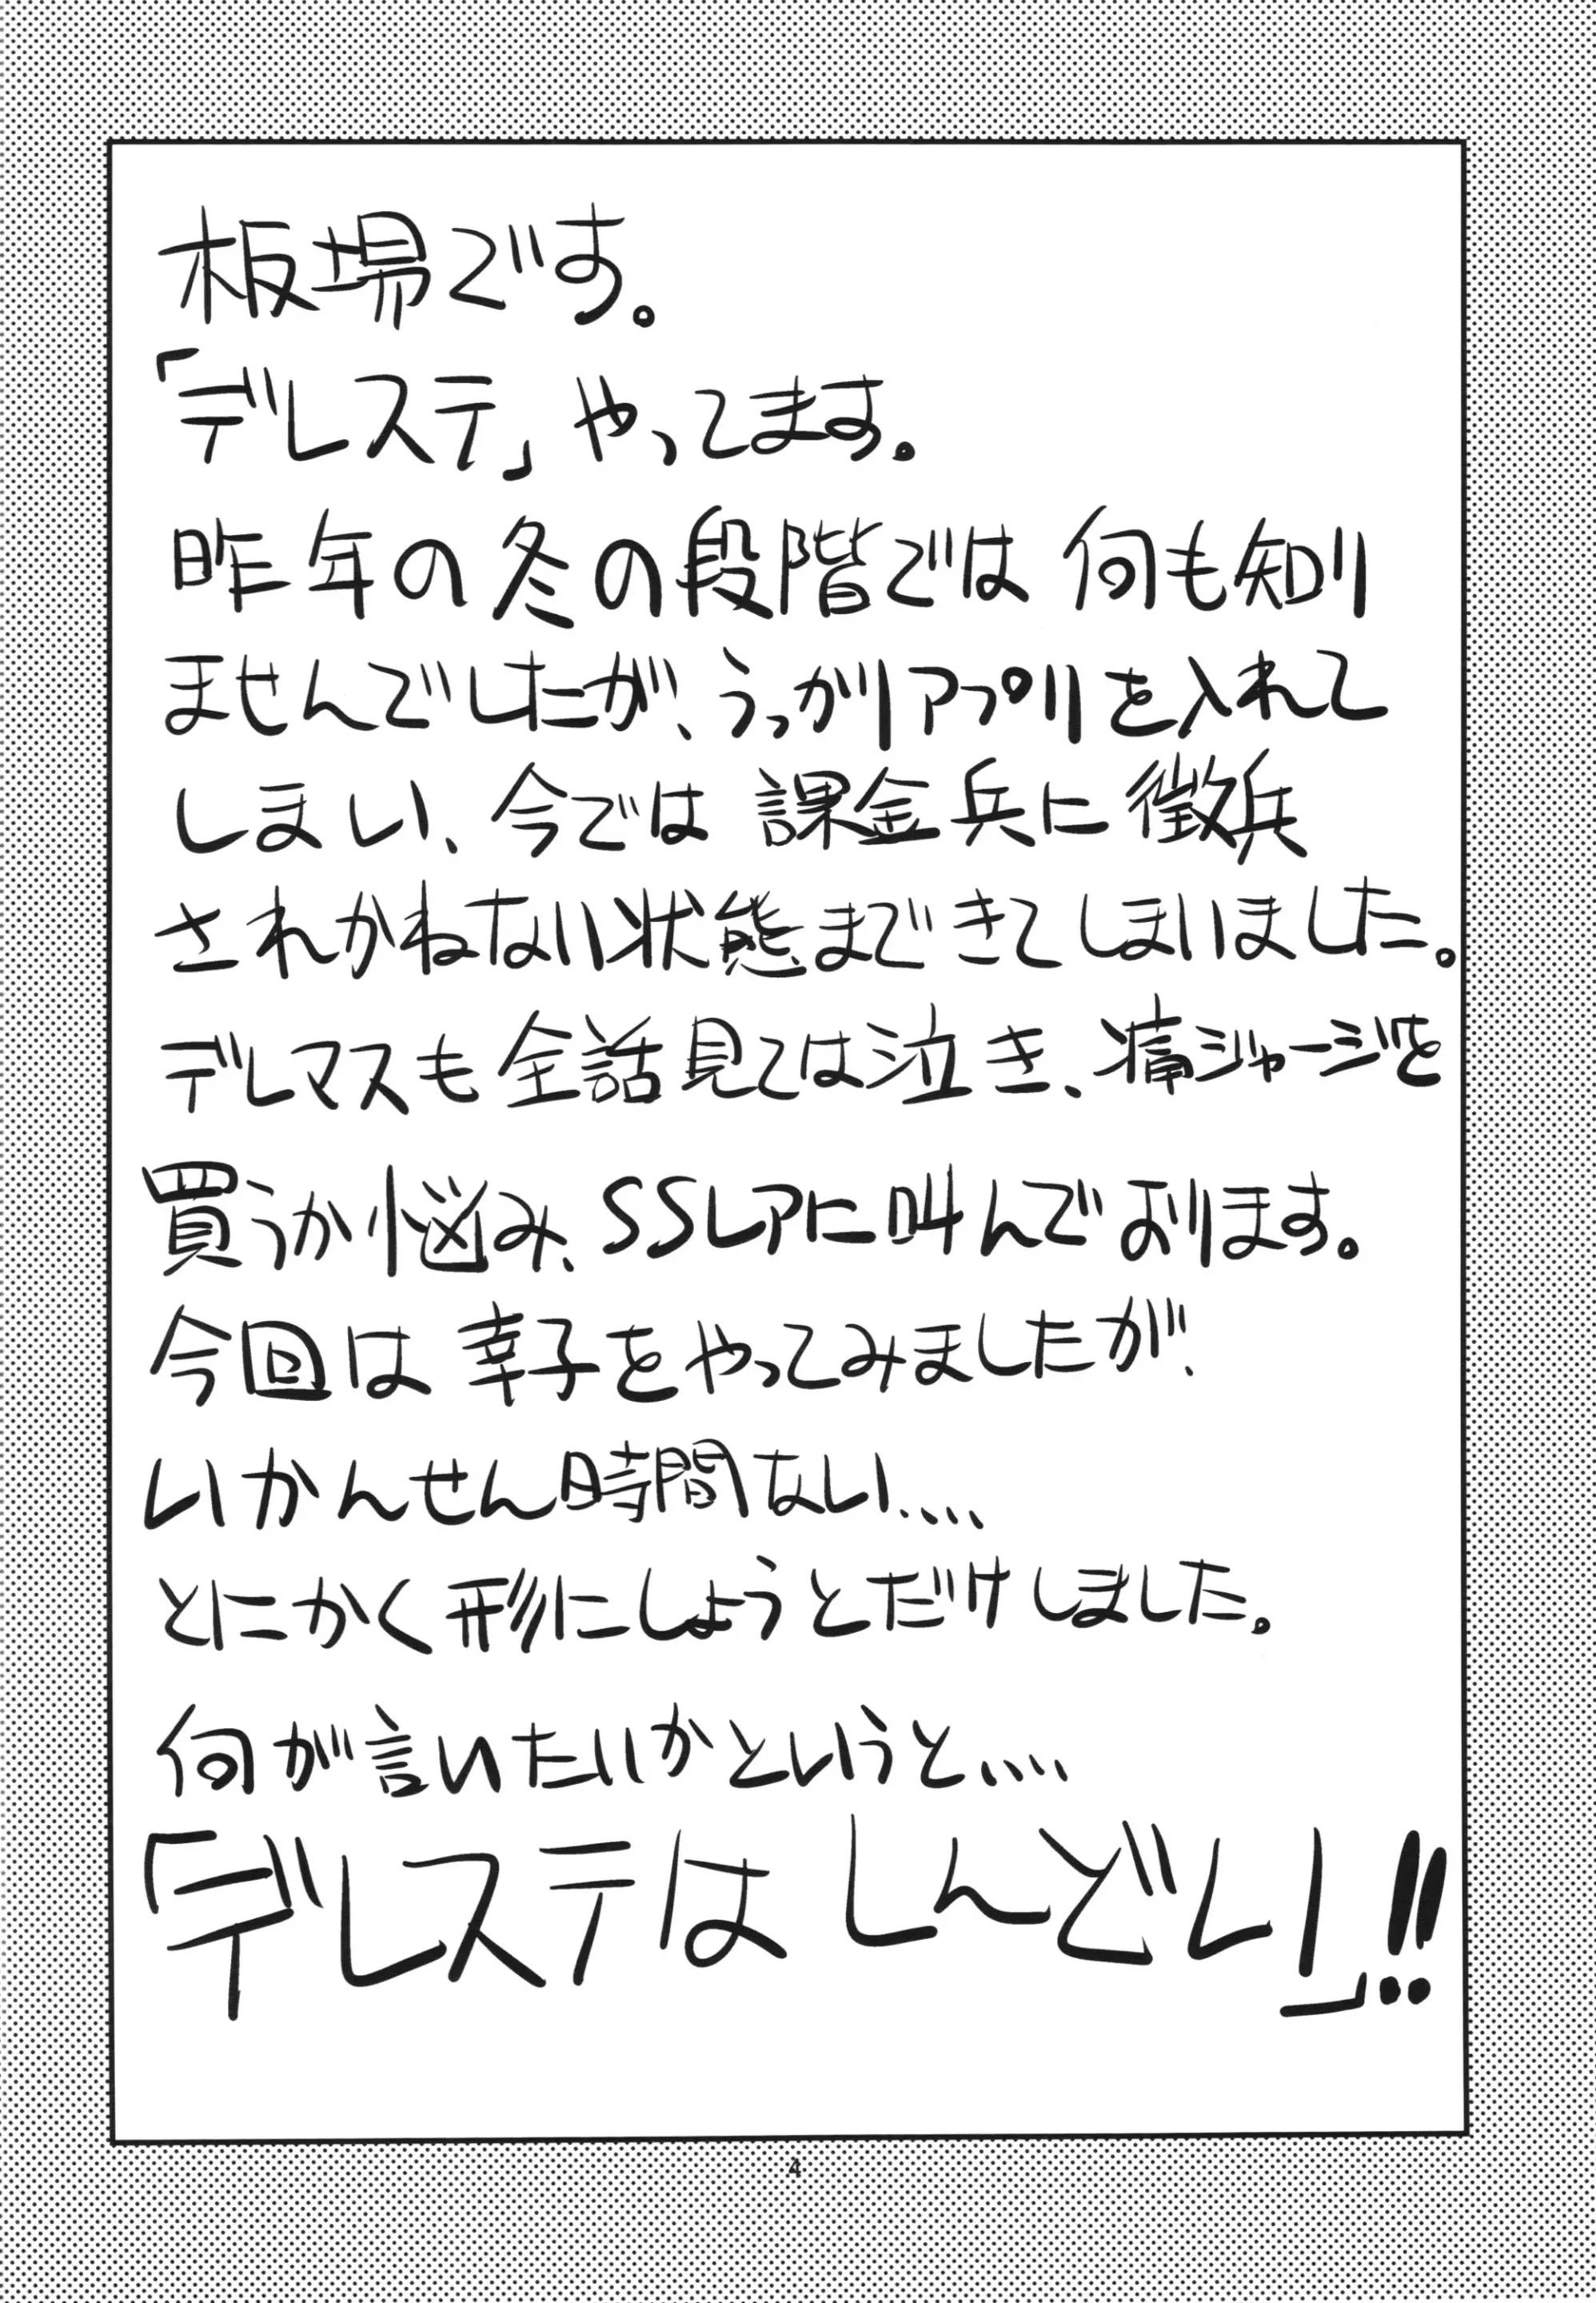 板場です。
「デレステ」やってます。
昨年の冬の段階では何も知り
ませんでしたが、うっかりアプリを入れて
しまい、今では課金兵に徴兵
されかねない状態まできてしまいました。
デレマスも全話見ては泣き、痛ジャージを
買うか悩み、SSレアに叫んでおります。
今回は幸子をやってみましたが、
いかんせん時間ない....
とにかく形にしようとだけしました。
何が言いたいかというと....
「デレステはしんどい」!!
4